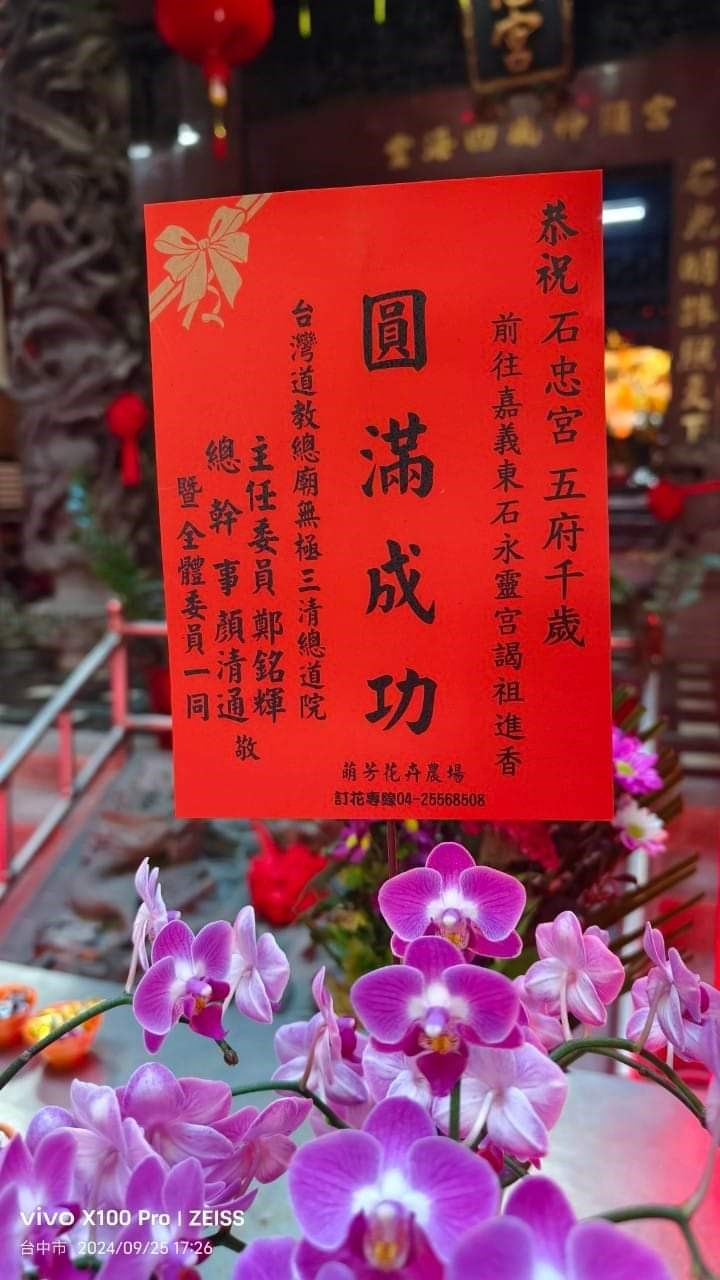 恭祝 石忠宮 五府千歲
前往嘉義東石永靈宮謁祖進香
圓滿成功
台灣道教總廟無極三清總道院
主任委員 鄭銘輝
總幹事 顏清通
暨全體委員一同
敬
萌芳花卉農場
訂花專線04-25568508
宮
vivo X100 Pro | ZEISS
台中市 2024/09/25 17:26